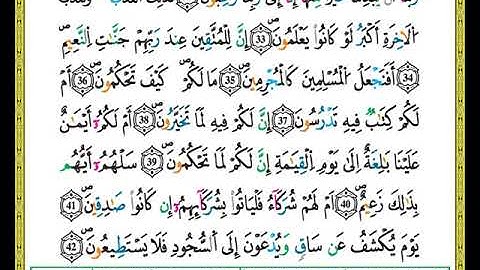 الْاٰخِرَةِ اَكْبَرُ لَوْ كَانُوْا يَعْلَمُوْنَ ۝33 اِنَّ لِلْمُتَّقِيْنَ عِنْدَ رَبِّهِمْ جَنّٰتِ النَّعِيْمِ
34 اَفَنَجْعَلُ الْمُسْلِمِيْنَ كَالْمُجْرِمِيْنَ 35 مَا لَكُمْ كَيْفَ تَحْكُمُوْنَ 36 اَمْ
لَكُمْ كِتٰبٌ فِيْهِ تَدْرُسُوْنَ 37 اِنَّ لَكُمْ فِيْهِ لَمَا تَخَيَّرُوْنَ 38 اَمْ لَكُمْ اَيْمَانٌ
عَلَيْنَا بَالِغَةٌ اِلٰى يَوْمِ الْقِيٰمَةِ اِنَّ لَكُمْ لَمَا تَحْكُمُوْنَ 39 سَلْهُمْ اَيُّهُمْ
بِذٰلِكَ زَعِيْمٌ 40 اَمْ لَهُمْ شُرَكَآءُ فَلْيَأْتُوْا بِشُرَكَآئِهِمْ اِنْ كَانُوْا صٰدِقِيْنَ 41
يَوْمَ يُكْشَفُ عَنْ سَاقٍ وَّيُدْعَوْنَ اِلَى السُّجُوْدِ فَلَا يَسْتَطِيْعُوْنَ 42